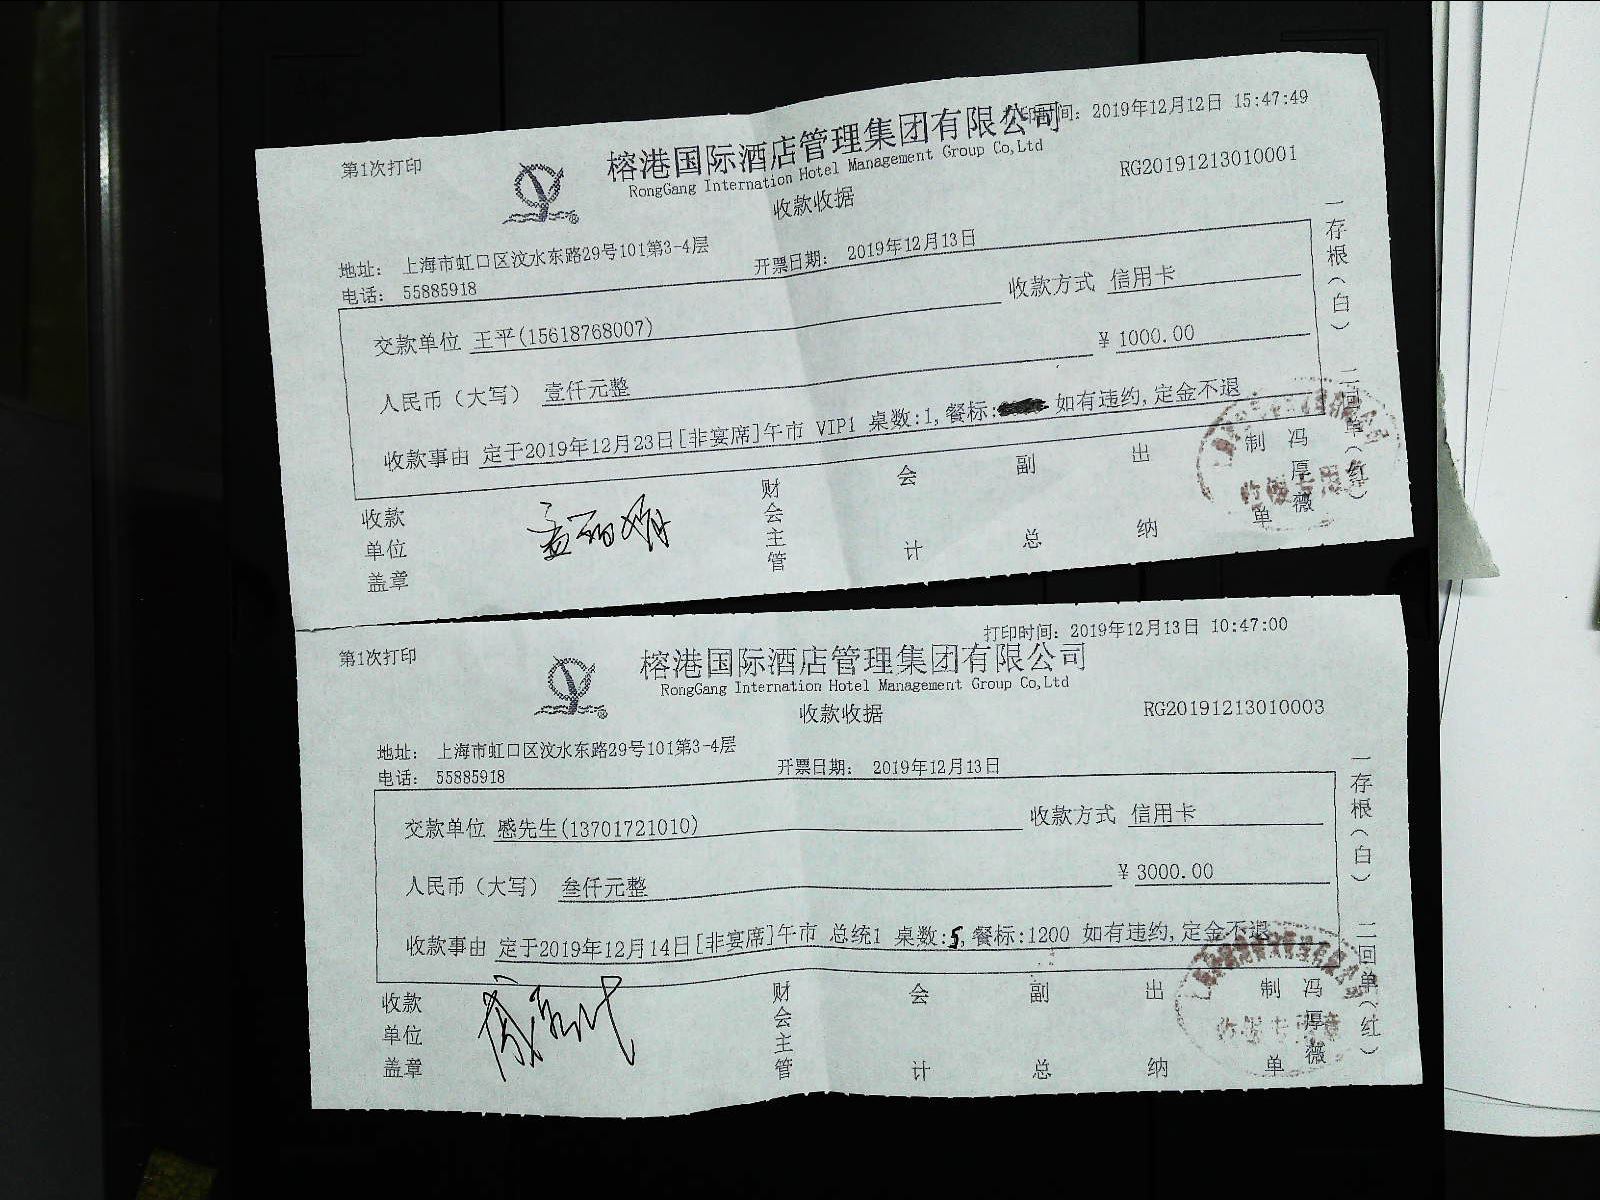 第1次打印
打印时间: 2019年12月12日 15:47:49
榕港国际酒店管理集团有限公司
RongGang Internation Hotel Management Group Co,Ltd
收款收据
RG20191213010001
地址: 上海市虹口区汶水东路29号101第3-4层
电话: 55885918
开票日期: 2019年12月13日
交款单位 王平(15618768007)
收款方式 信用卡
人民币（大写） 壹仟元整
¥ 1000.00
收款事由 定于2019年12月23日[非宴席]午市 VIP1 桌数:1, 餐标: 如有违约, 定金不退
收款单位盖章
财会主管
会计
副总
出纳
制单
冯厚薇
一存根（白） 二回单（红）
第1次打印
打印时间: 2019年12月13日 10:47:00
榕港国际酒店管理集团有限公司
RongGang Internation Hotel Management Group Co,Ltd
收款收据
RG20191213010003
地址: 上海市虹口区汶水东路29号101第3-4层
电话: 55885918
开票日期: 2019年12月13日
交款单位 感先生(13701721010)
收款方式 信用卡
人民币（大写） 叁仟元整
¥ 3000.00
收款事由 定于2019年12月14日[非宴席]午市 总统1 桌数:5, 餐标:1200 如有违约, 定金不退
收款单位盖章
财会主管
会计
副总
出纳
制单
冯厚薇
一存根（白） 二回单（红）